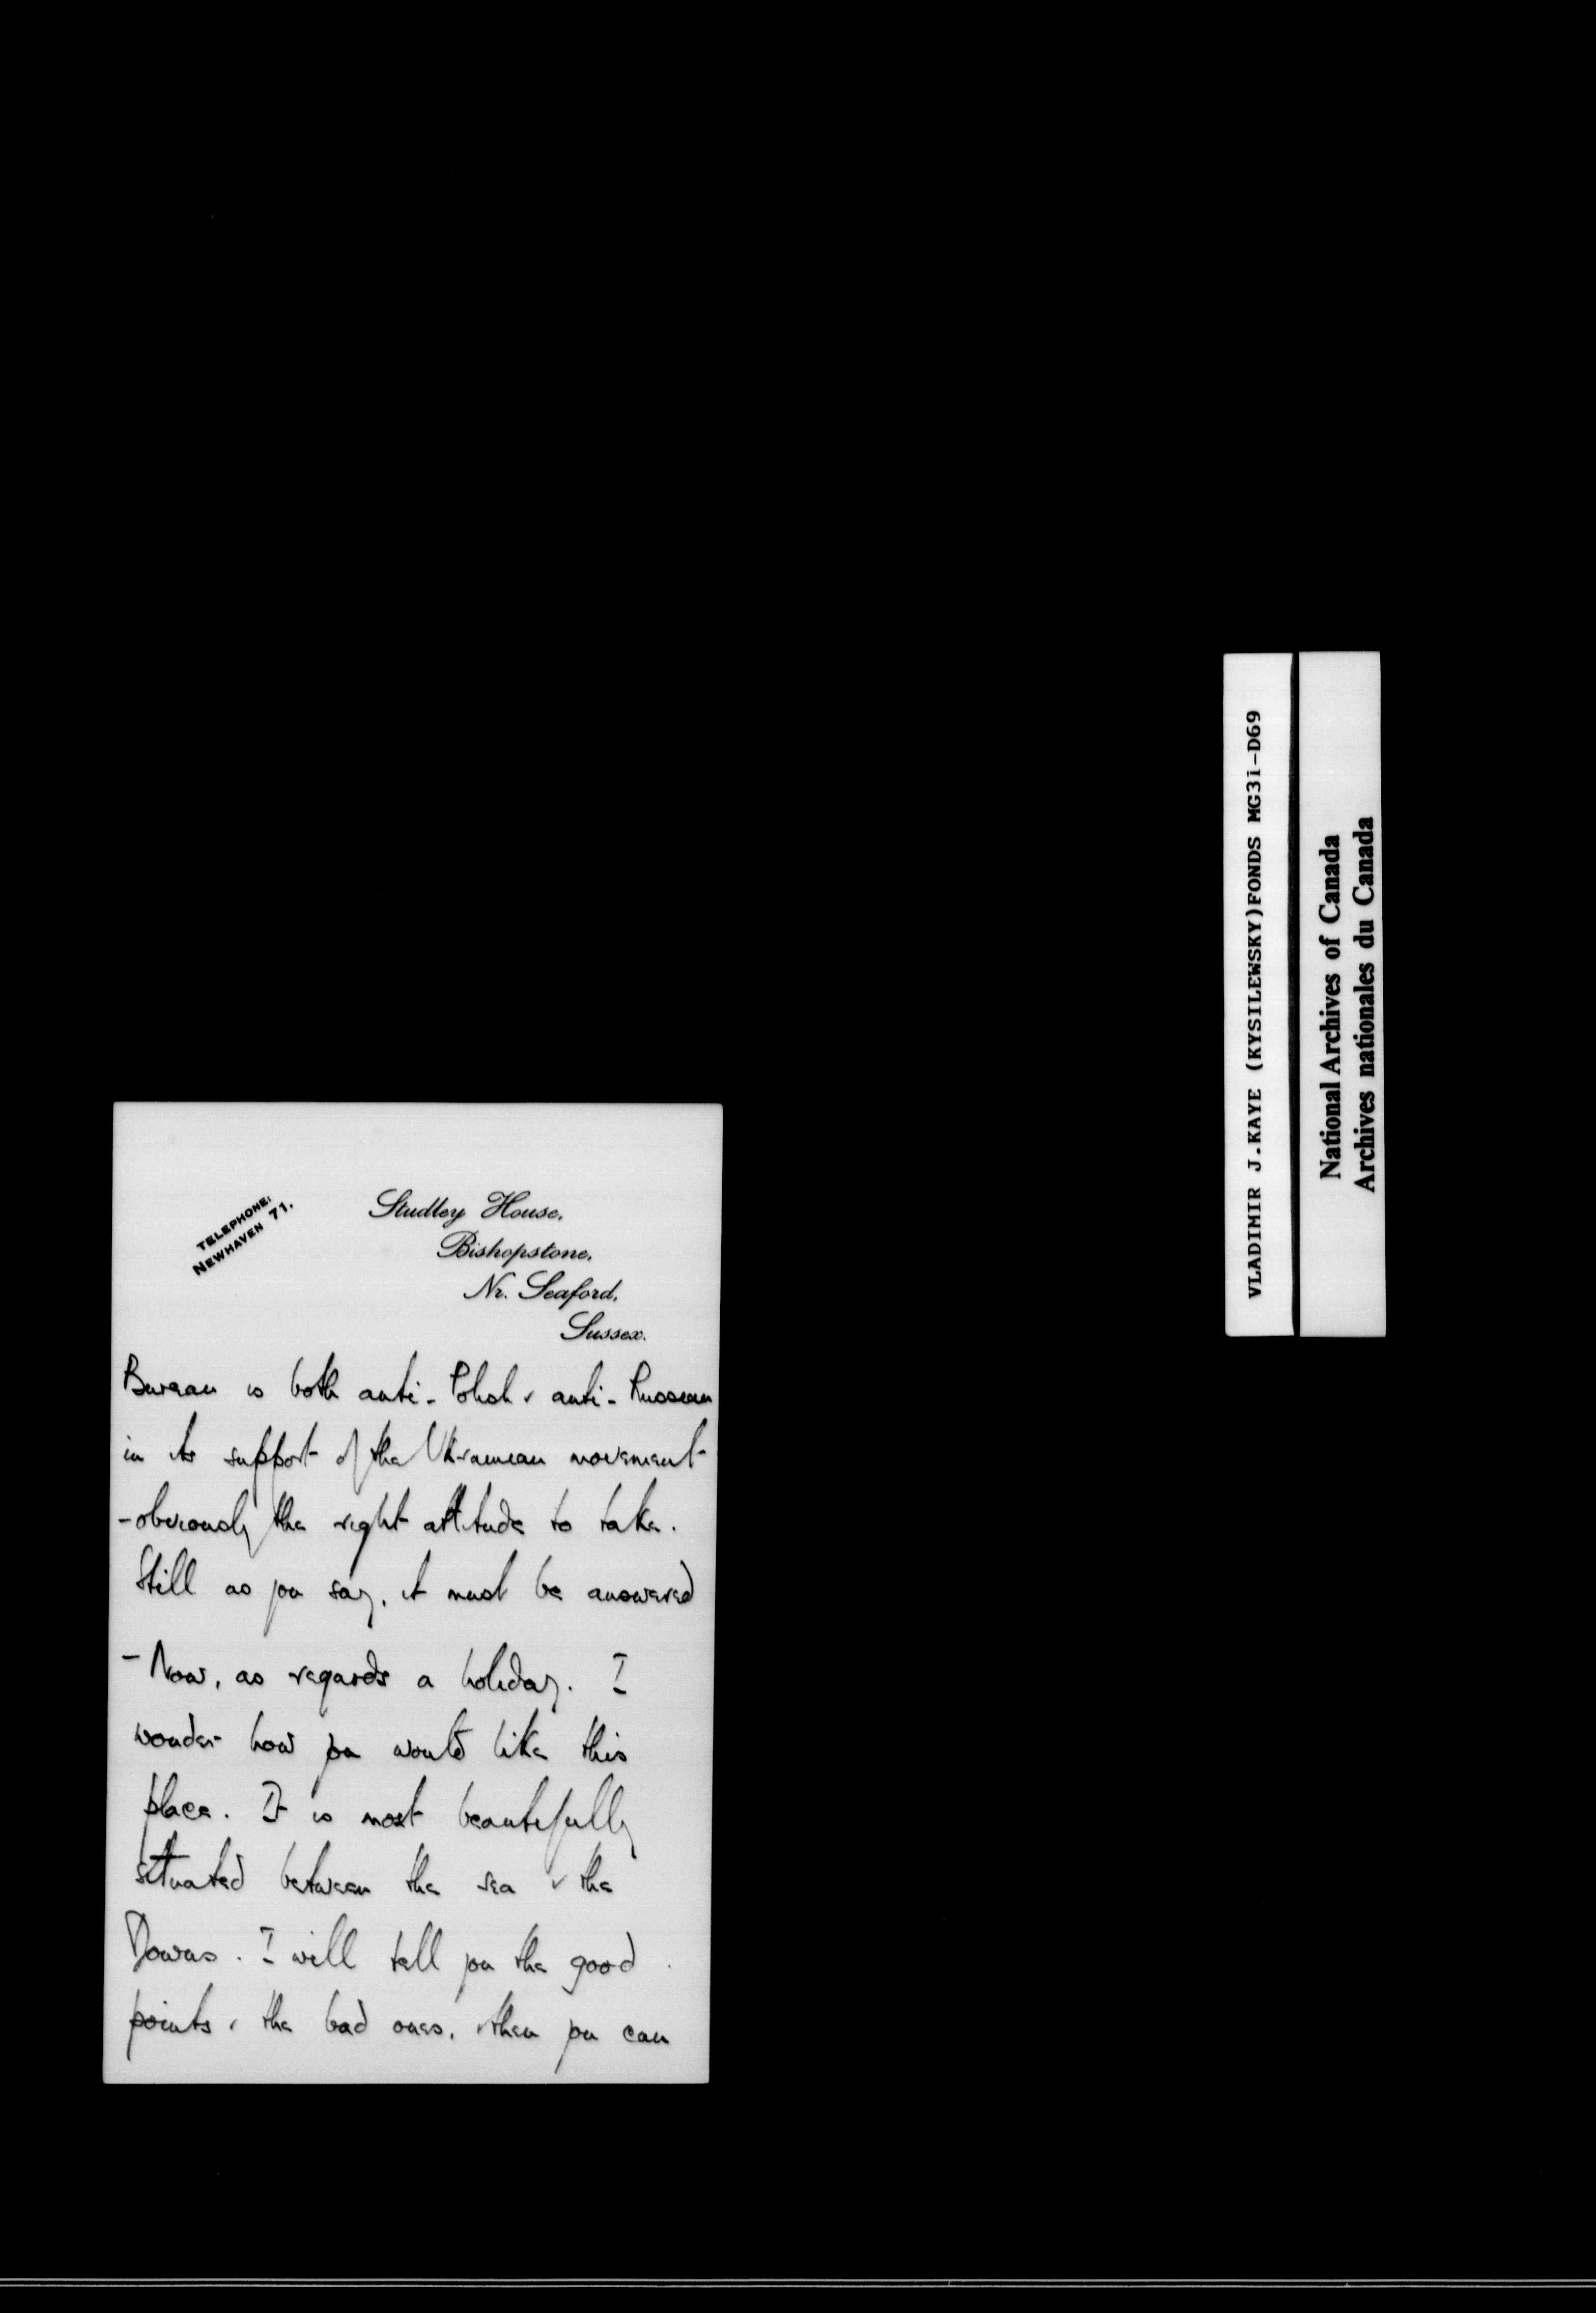 TELEPHONE:
NEWHAVEN 71.
Studley House,
Bishopstone,
Nr. Seaford,
Sussex.
Bureau is both anti-Polish & anti-Russian
in its support of the Ukrainian movement
- obviously the right attitude to take.
Still as you say, it must be answered
- Now, as regards a holiday. I
wonder how you would like this
place. It is most beautifully
situated between the sea & the
Downs. I will tell you the good
points & the bad ones, & then you can
VLADIMIR J.KAYE (KYSILEWSKY)FONDS MG31-D69
National Archives of Canada
Archives nationales du Canada